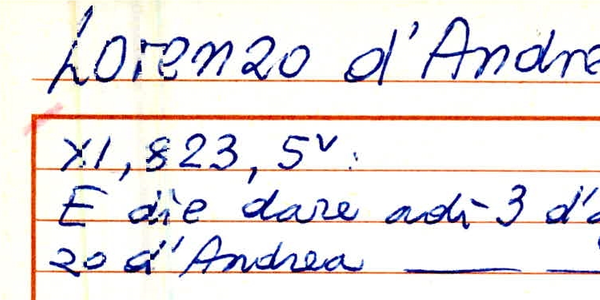 Lorenzo d'Andre
XI, 823, 5v.
E die dare adì 3 d'
zo d'Andrea